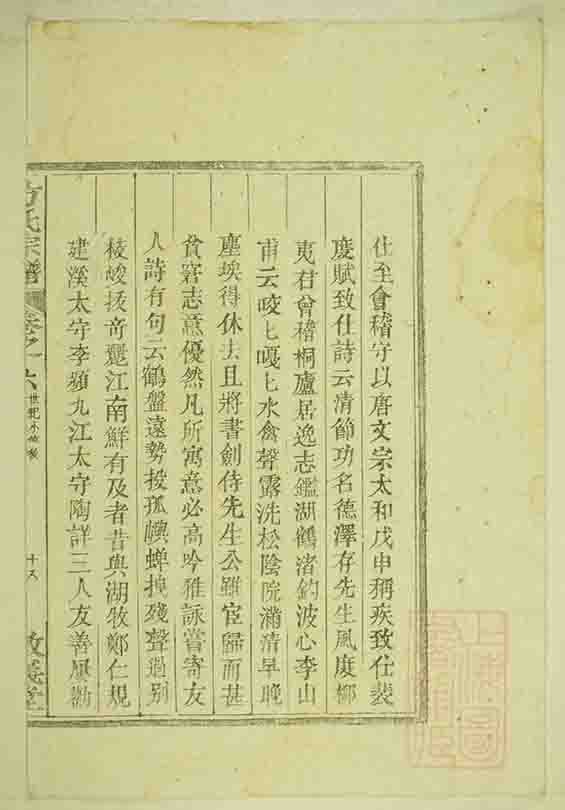 仕至會稽守以唐文宗太和戊申稱疾致仕裴
度賦致仕詩云清節功名德澤存先生風度柳
夷君曾稽桐廬居逸志鑑湖鶴渚釣波心李山
甫云咬七嘎七水禽聲露洗松陰院滿清早晚
塵埃得休去且將書劍侍先生公雖宦歸而甚
貧窘志意優然凡所寓意必高吟雅詠嘗寄友
人詩有句云鶴盤遠勢投孤嶼蟬掉殘聲過别
稜峻拔奇麗江南鮮有及者昔與湖牧鄭仁規
建溪太守李頻九江太守陶詳三人友善屢勸
方氏宗譜
卷之
十六